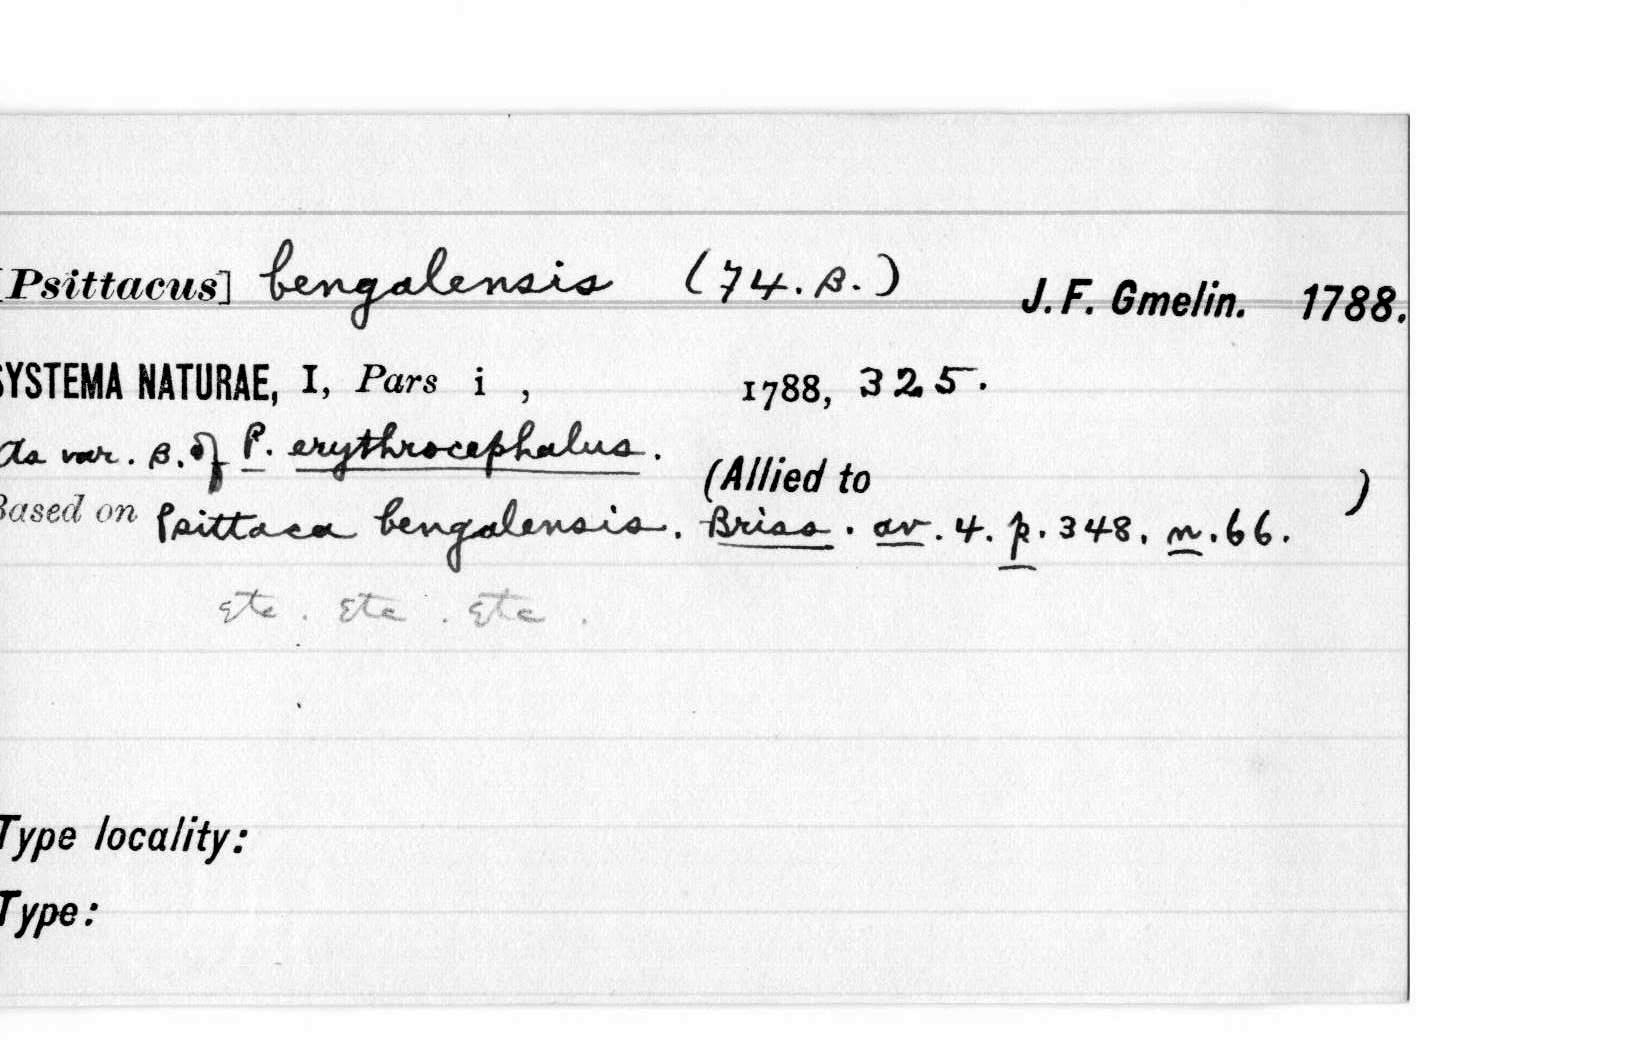 [Psittacus] bengalensis (74. β.) J. F. Gmelin. 1788.
SYSTEMA NATURAE, I, Pars i , 1788, 325.
As var. β. of P. erythrocephalus. (Allied to )
Based on Psittaca bengalensis. Briss. av. 4. p. 348. n. 66.
Etc. Etc. Etc.
Type locality:
Type: